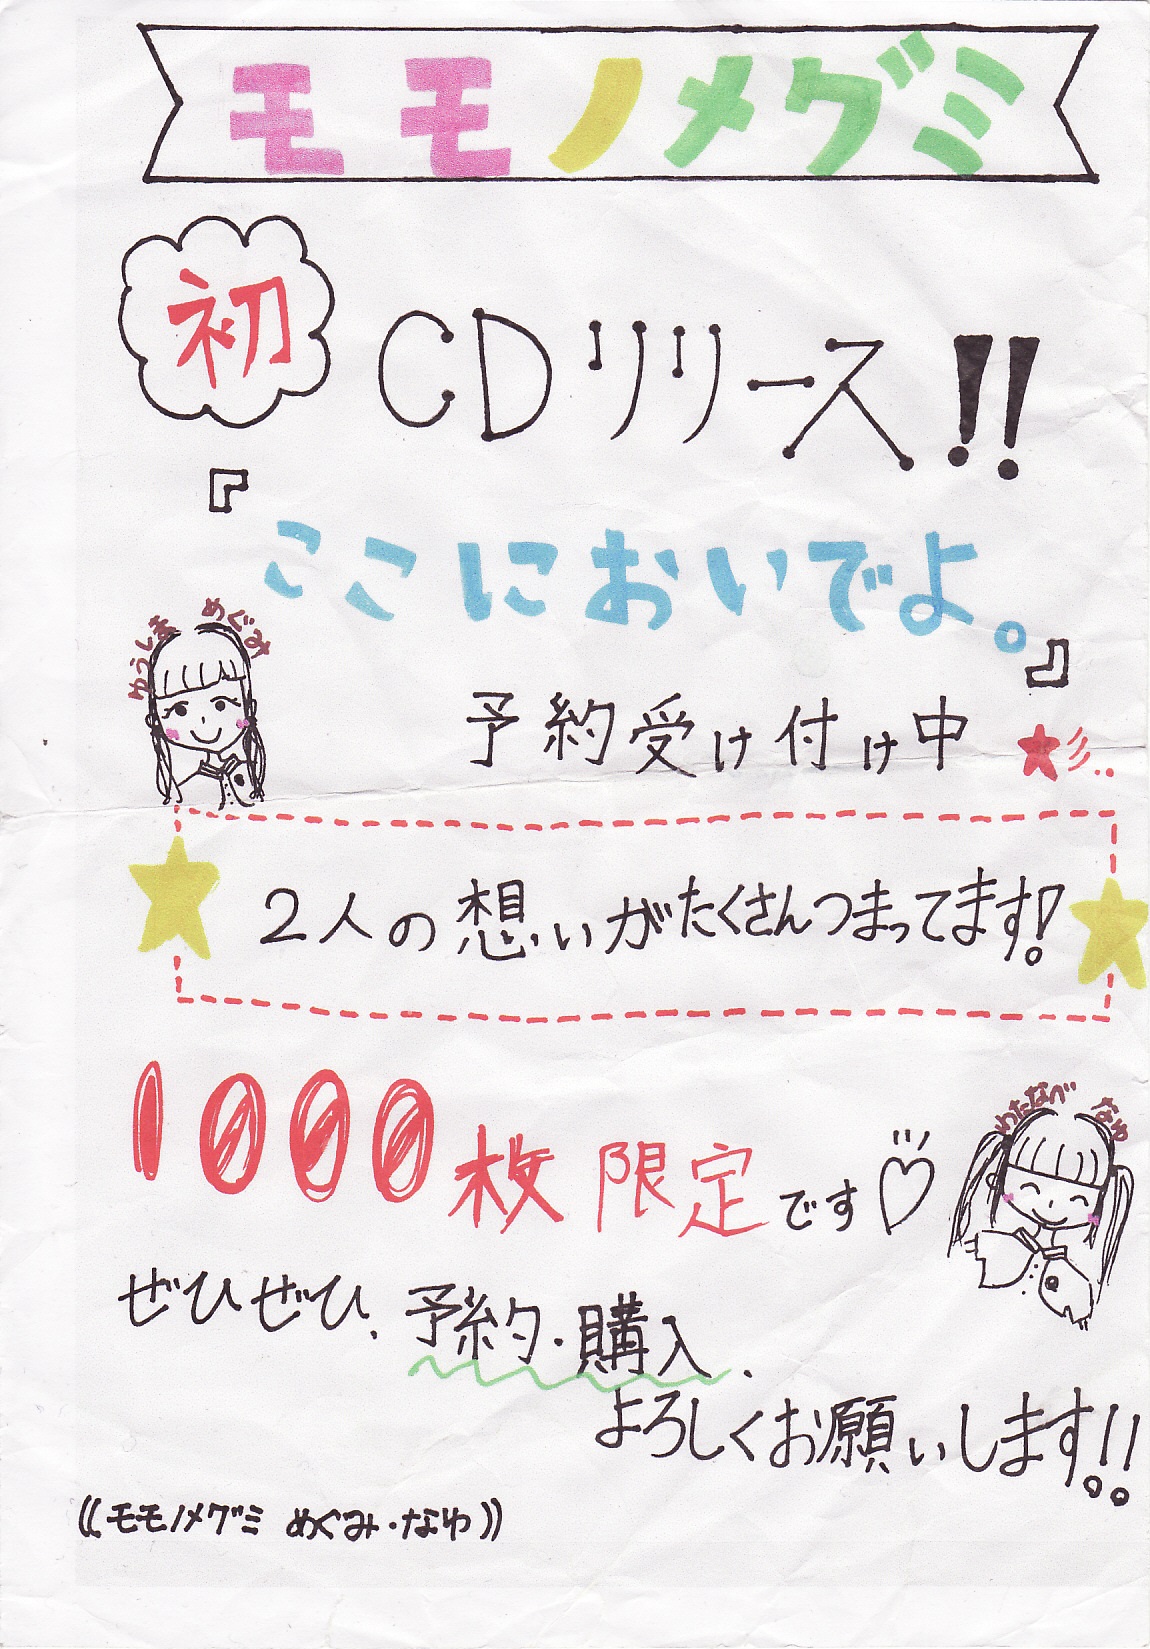 モモノメグミ
初
CDリリース!!
『
ここにおいでよ。
』
ゆうしま めぐみ
予約受け付け中
2人の想いがたくさんつまってます!
1000枚限定です♡
わたなべ なゆ
ぜひぜひ、予約・購入、
よろしくお願いします!!
((モモノメグミ めぐみ・なゆ))